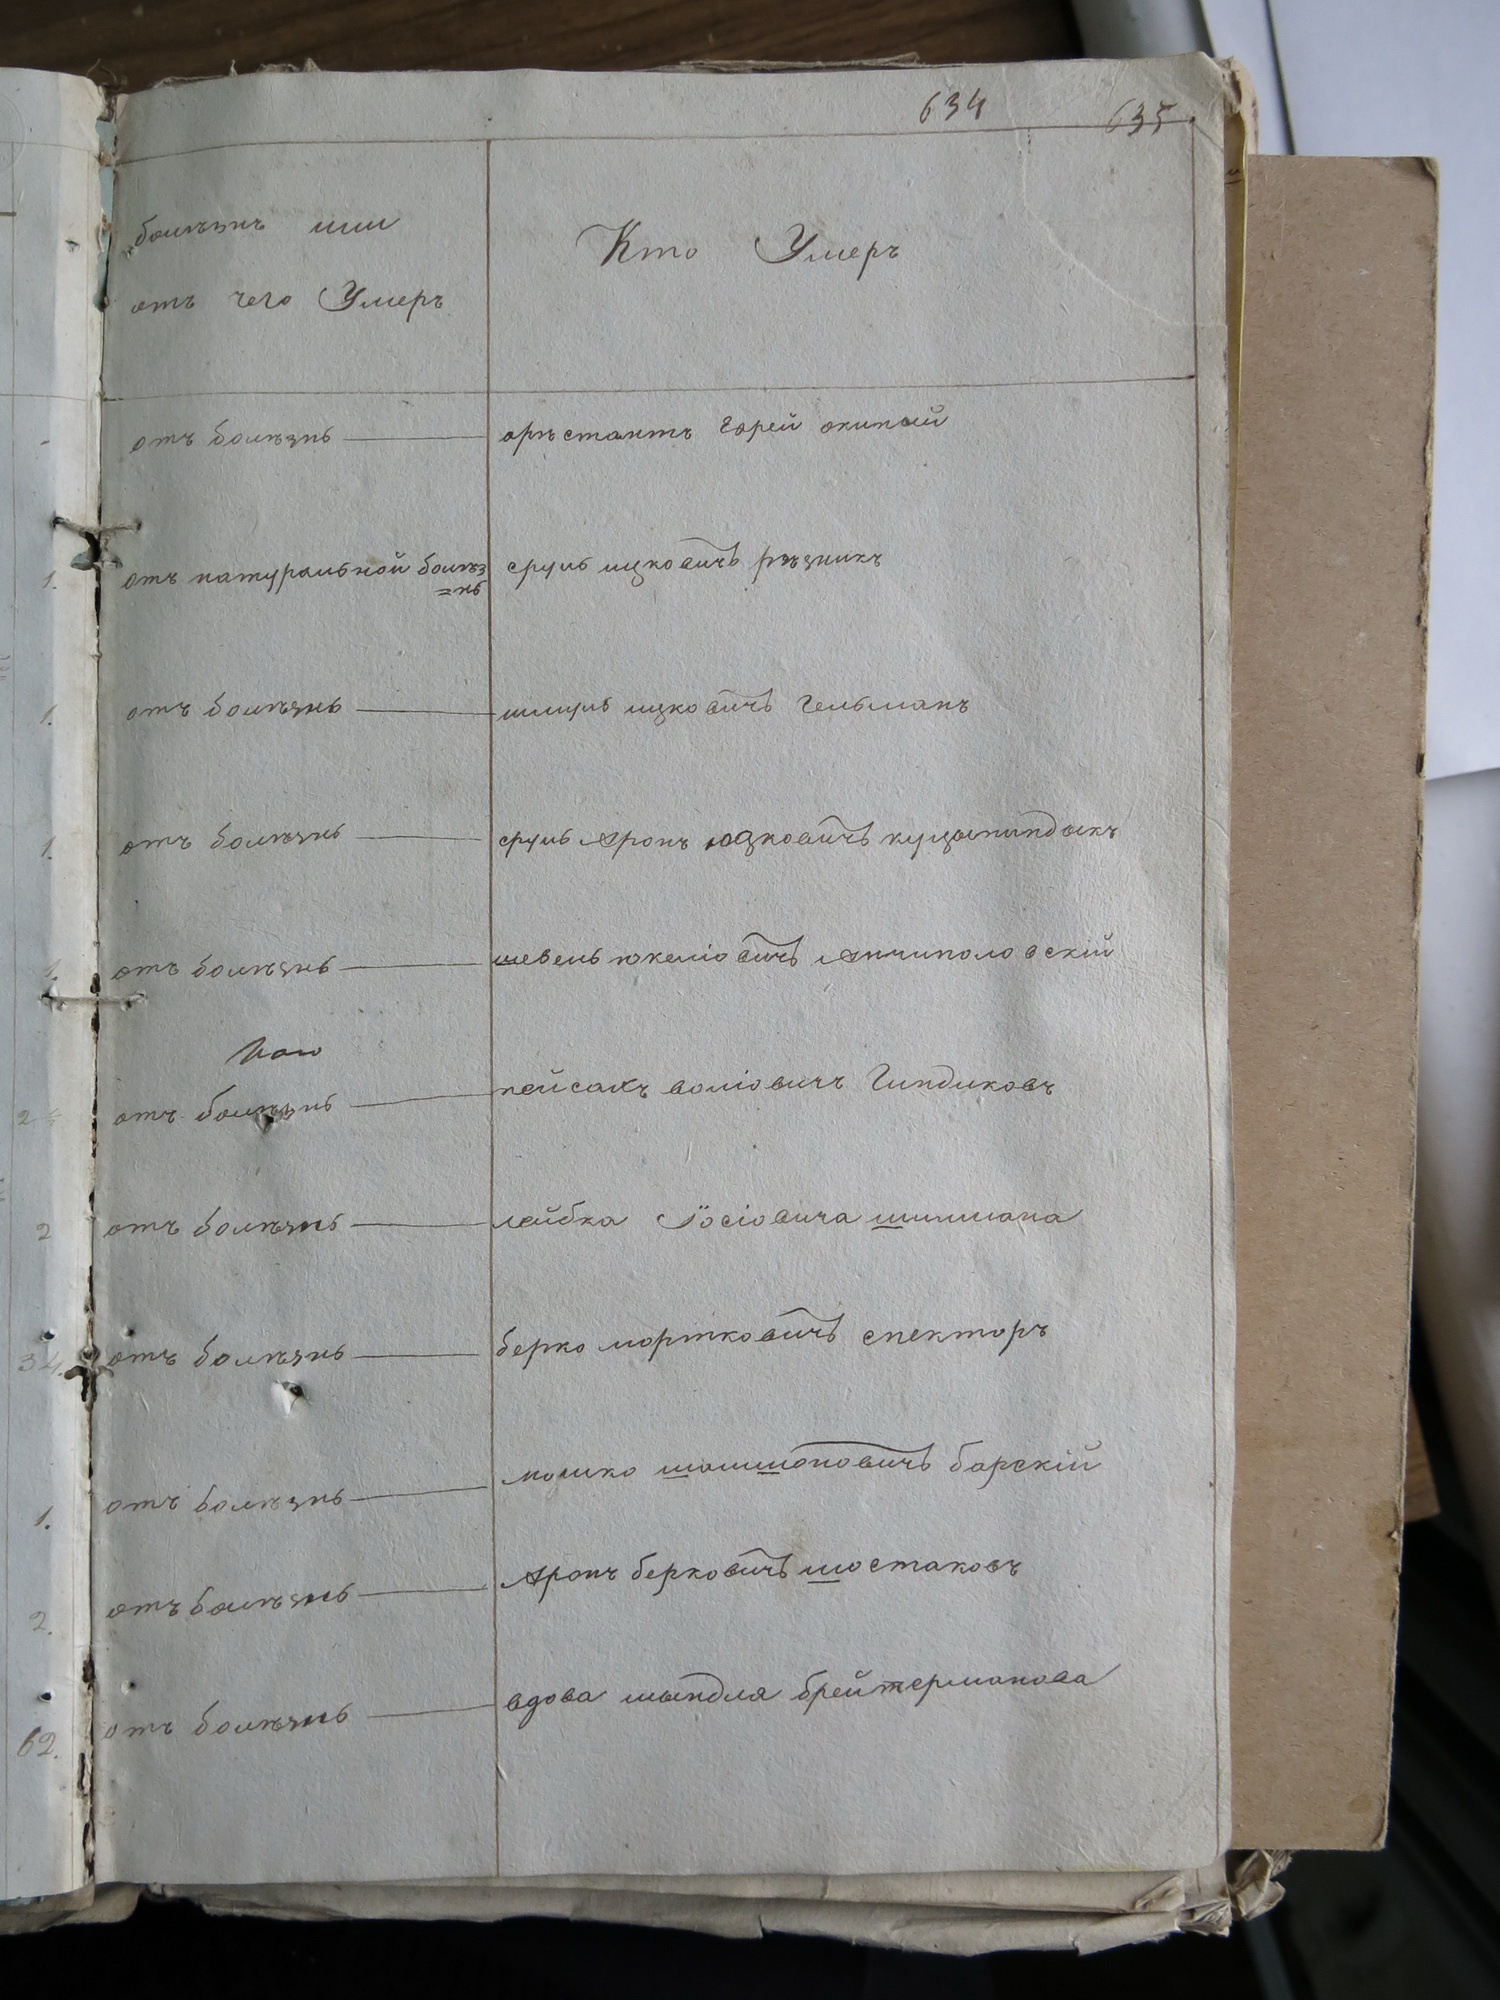 634 635
болѣзнь или
отъ чего Умеръ
Кто Умеръ
отъ болѣзнь арѣстантъ Еврей
1. отъ натуральной болѣз сруль ицковичъ рѣзникъ
=нь
1. отъ болѣзнь шмуль ицковичъ Гельманъ
1. отъ болѣзнь сруль Аронъ юцковичъ
1. отъ болѣзнь шевель юкеліовичъ Анчиполовскій
отъ болѣзнь пейсахъ воліовичъ Гиндиковъ
2 отъ болѣзнь лейбка Іосіовича шилмана
34. отъ болѣзнь берко мортковичъ спекторъ
1. отъ болѣзнь мошко шамшоновичъ барскій
2. отъ болѣзнь Аронъ берковичъ шостаковъ
62. отъ болѣзнь вдова мындля брейтерманова